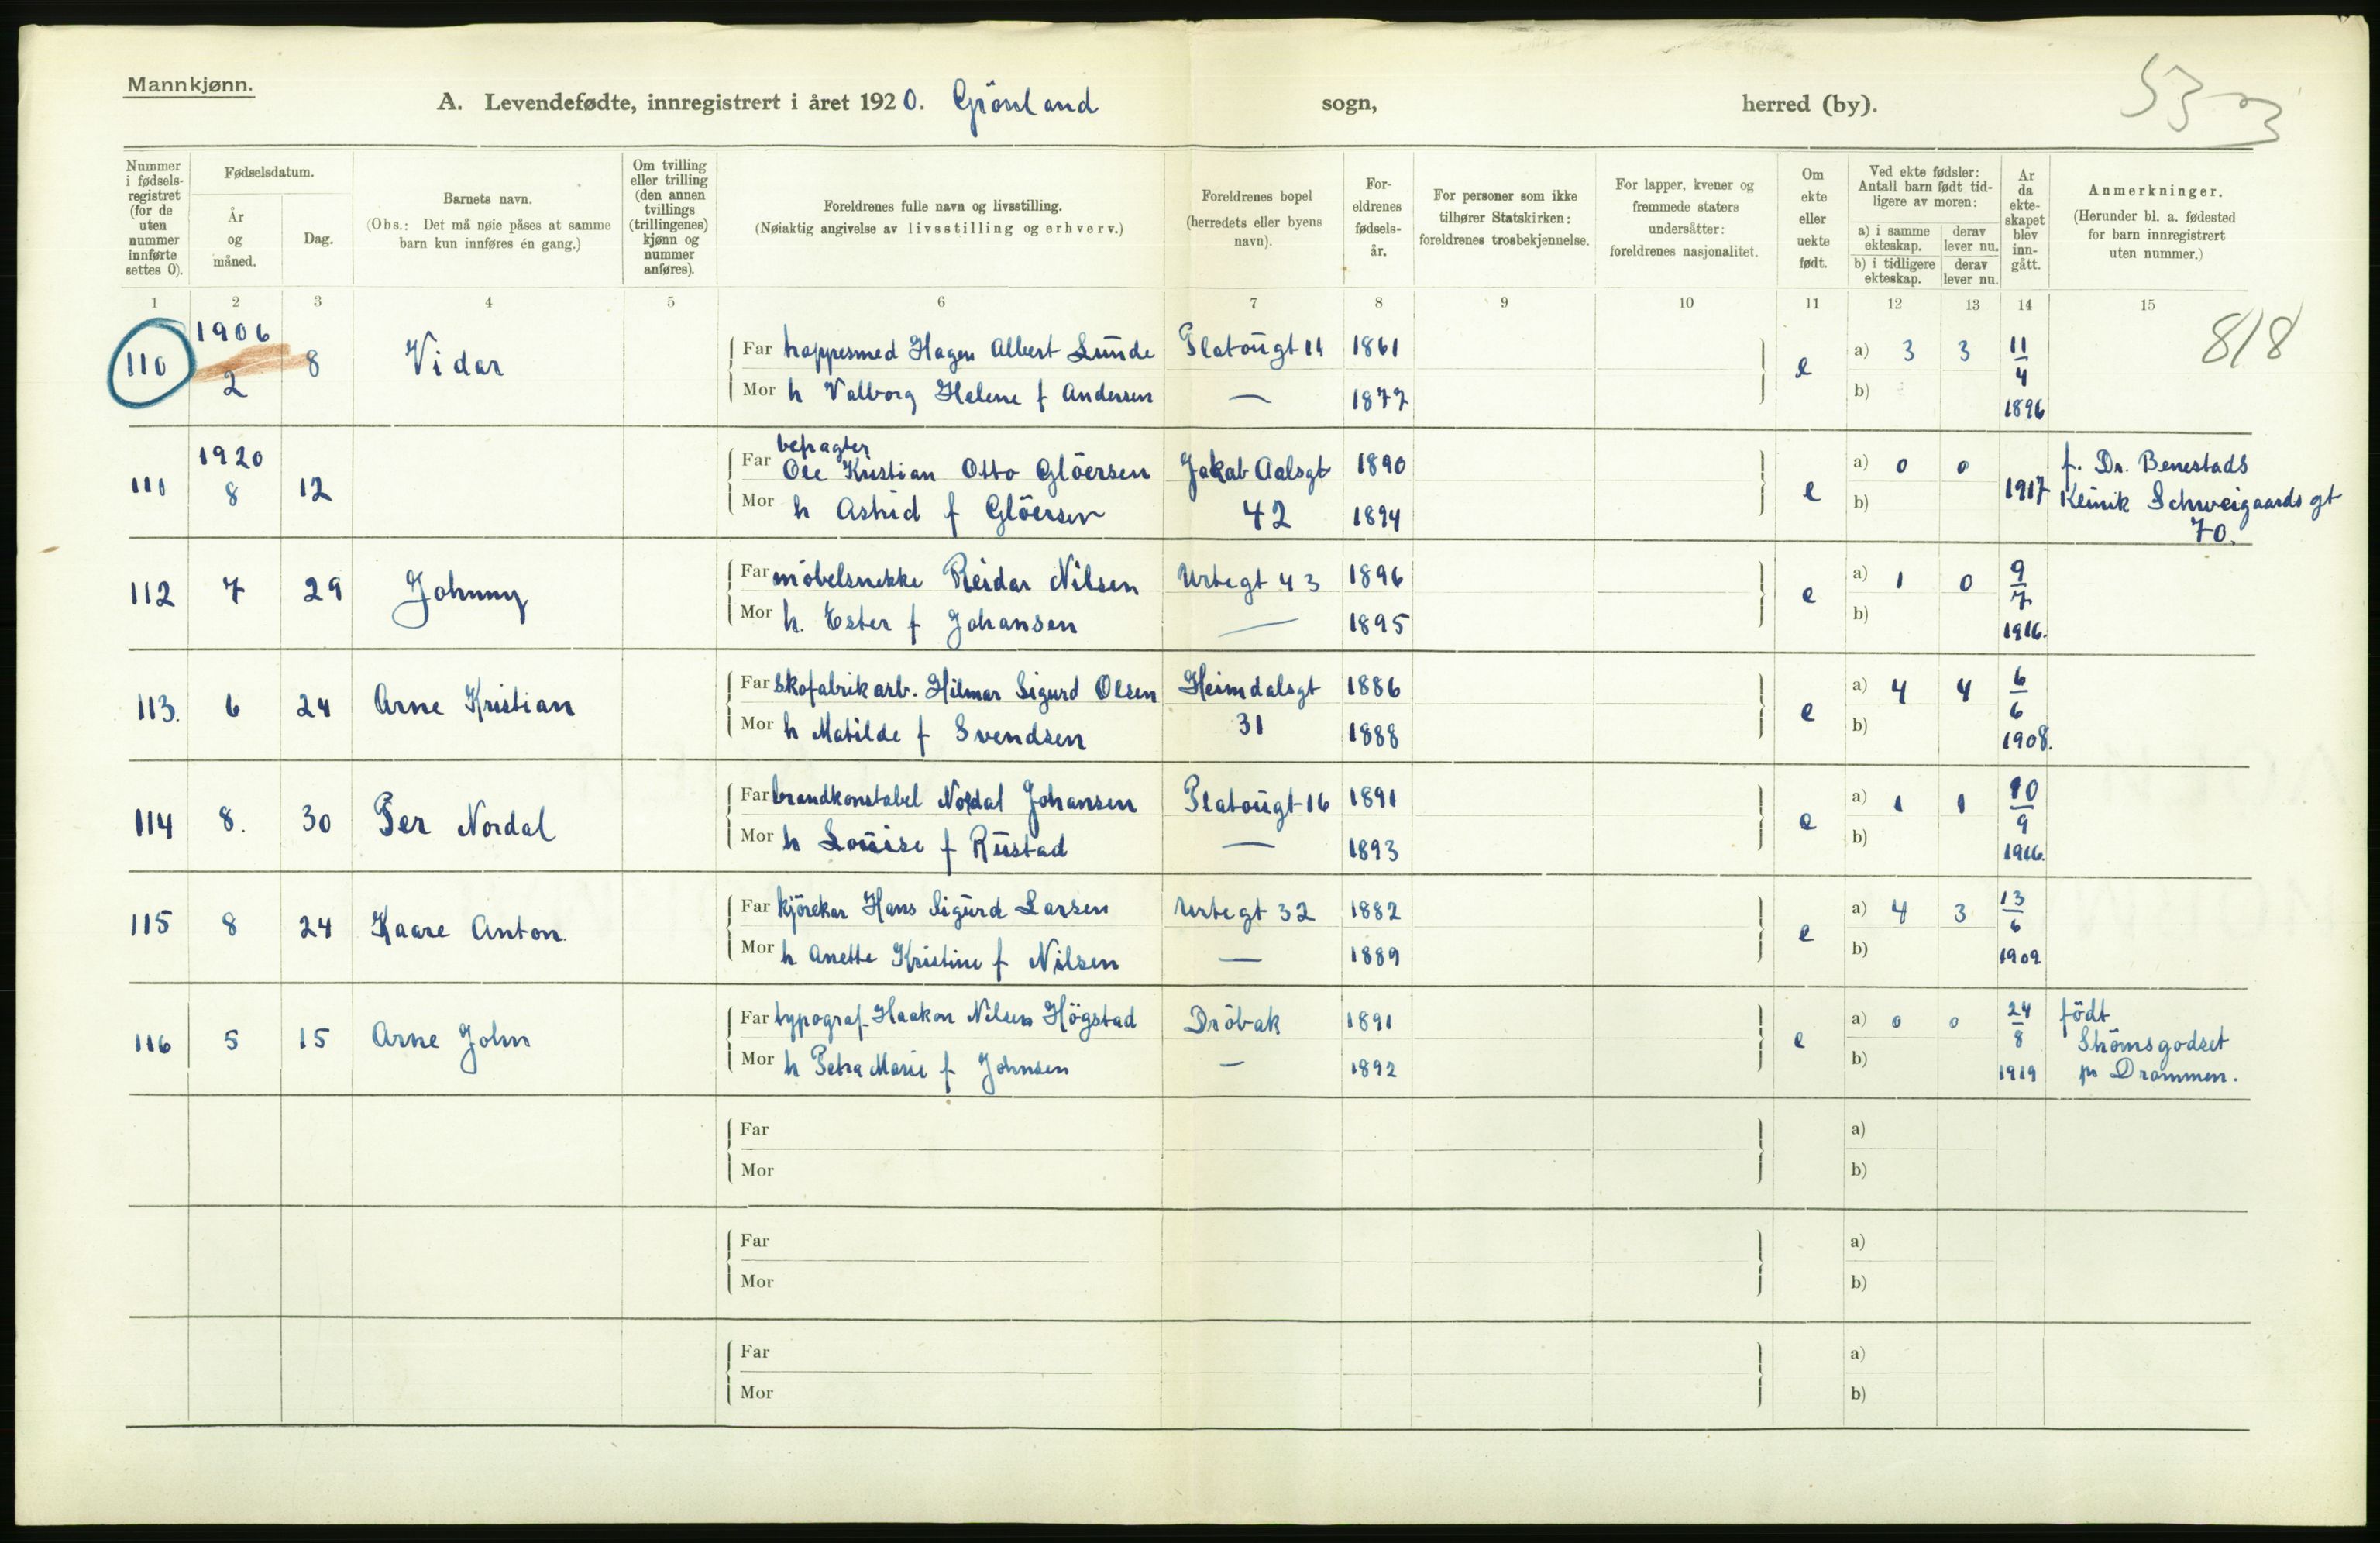 Mannkjønn.
A. Levendefødte, innregistrert i året 1920. Grönland sogn, herred (by).
Nummer i fødsels-registret (for de uten nummer innførte settes 0).
Fødselsdatum.
År og måned.
Dag.
Barnets navn.
(Obs.: Det må nøie påses at samme barn kun innføres én gang.)
Om tvilling eller trilling (den annen tvillings (trillingenes) kjønn og nummer anføres).
Foreldrenes fulle navn og livsstilling.
(Nøiaktig angivelse av livsstilling og erhverv.)
Foreldrenes bopel (herredets eller byens navn).
For-eldrenes fødsels-år.
For personer som ikke tilhører Statskirken: foreldrenes trosbekjennelse.
For lapper, kvener og fremmede staters undersåtter: foreldrenes nasjonalitet.
Om ekte eller uekte født.
Ved ekte fødsler: Antall barn født tid-ligere av moren:
a) i samme ekteskap. derav lever nu.
b) i tidligere ekteskap. derav lever nu.
År da ekte-skapet blev inn-gått.
Anmerkninger.
(Herunder bl. a. fødested for barn innregistrert uten nummer.)
1 2 3 4 5 6 7 8 9 10 11 12 13 14 15
818
110 1906 2 8 Vidar
Far Hagen Albert Lunde Platougt 1861
Mor h Valborg Helene f Andersen — 1877
e a) 3 3 b) 11/4 1896
111 1920 8 12
Far befragter Ole Kristian Otto Glöersen Jakob Aalsgt 1890
Mor h Astrid f Glöersen 42 1894
e a) 0 0 b) 1917
f. Dr. Benestads
Klinik Schweigaards gt
70.
112 7 29 Johnny
Far möbelsnekke Reidar Nilsen Urtegt 43 1896
Mor h. Ester f Johansen — 1895
e a) 1 0 b) 9/7 1916.
113. 6 24 Arne Kristian
Far Skofabrikarb. Hilmar Sigurd Olsen Heimdalsgt 1886
Mor h Matilde f Svendsen 31 1888
e a) 4 4 b) 6/6 1908.
114 8. 30 Per Nordal
Far brandkonstabel Nordal Johansen Platougt 16 1891
Mor h Louise f Rustad — 1893
e a) 1 1 b) 10/9 1916.
115 8 24 Kaare Anton.
Far kjörekar Hans Sigurd Larsen Urtegt 32 1882
Mor h Anette Kristine f Nilsen — 1889
e a) 4 3 b) 13/6 1909
116 5 15 Arne John
Far typograf. Haakon Nilsen Högstad Dröbak 1891
Mor h Petra Marie f Johnsen — 1892
e a) 0 0 b) 24/8 1919
födt
Strömsgodset
pr Drammen.
Far a)
Mor b)
Far a)
Mor b)
Far a)
Mor b)